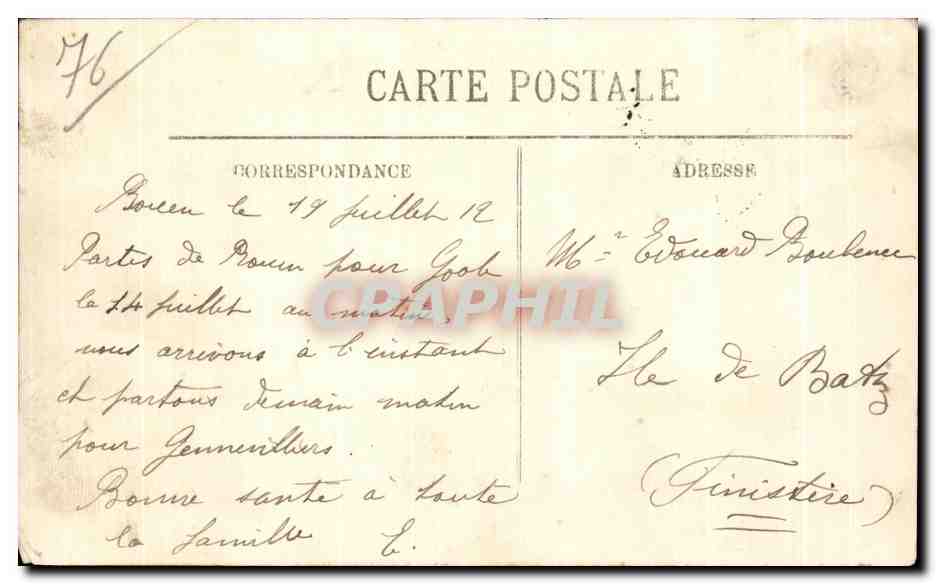 76
CARTE POSTALE
CORRESPONDANCE
Rouen le 19 juillet 12
Partis de Rouen pour Goole
le 14 juillet au matin,
nous arrivons à l'instant
et partons demain matin
pour Gennevilliers.
Bonne santé à toute
la famille E.
ADRESSE
Mr Edouard
Ile de Batz
(Finistère)
CPAPHIL